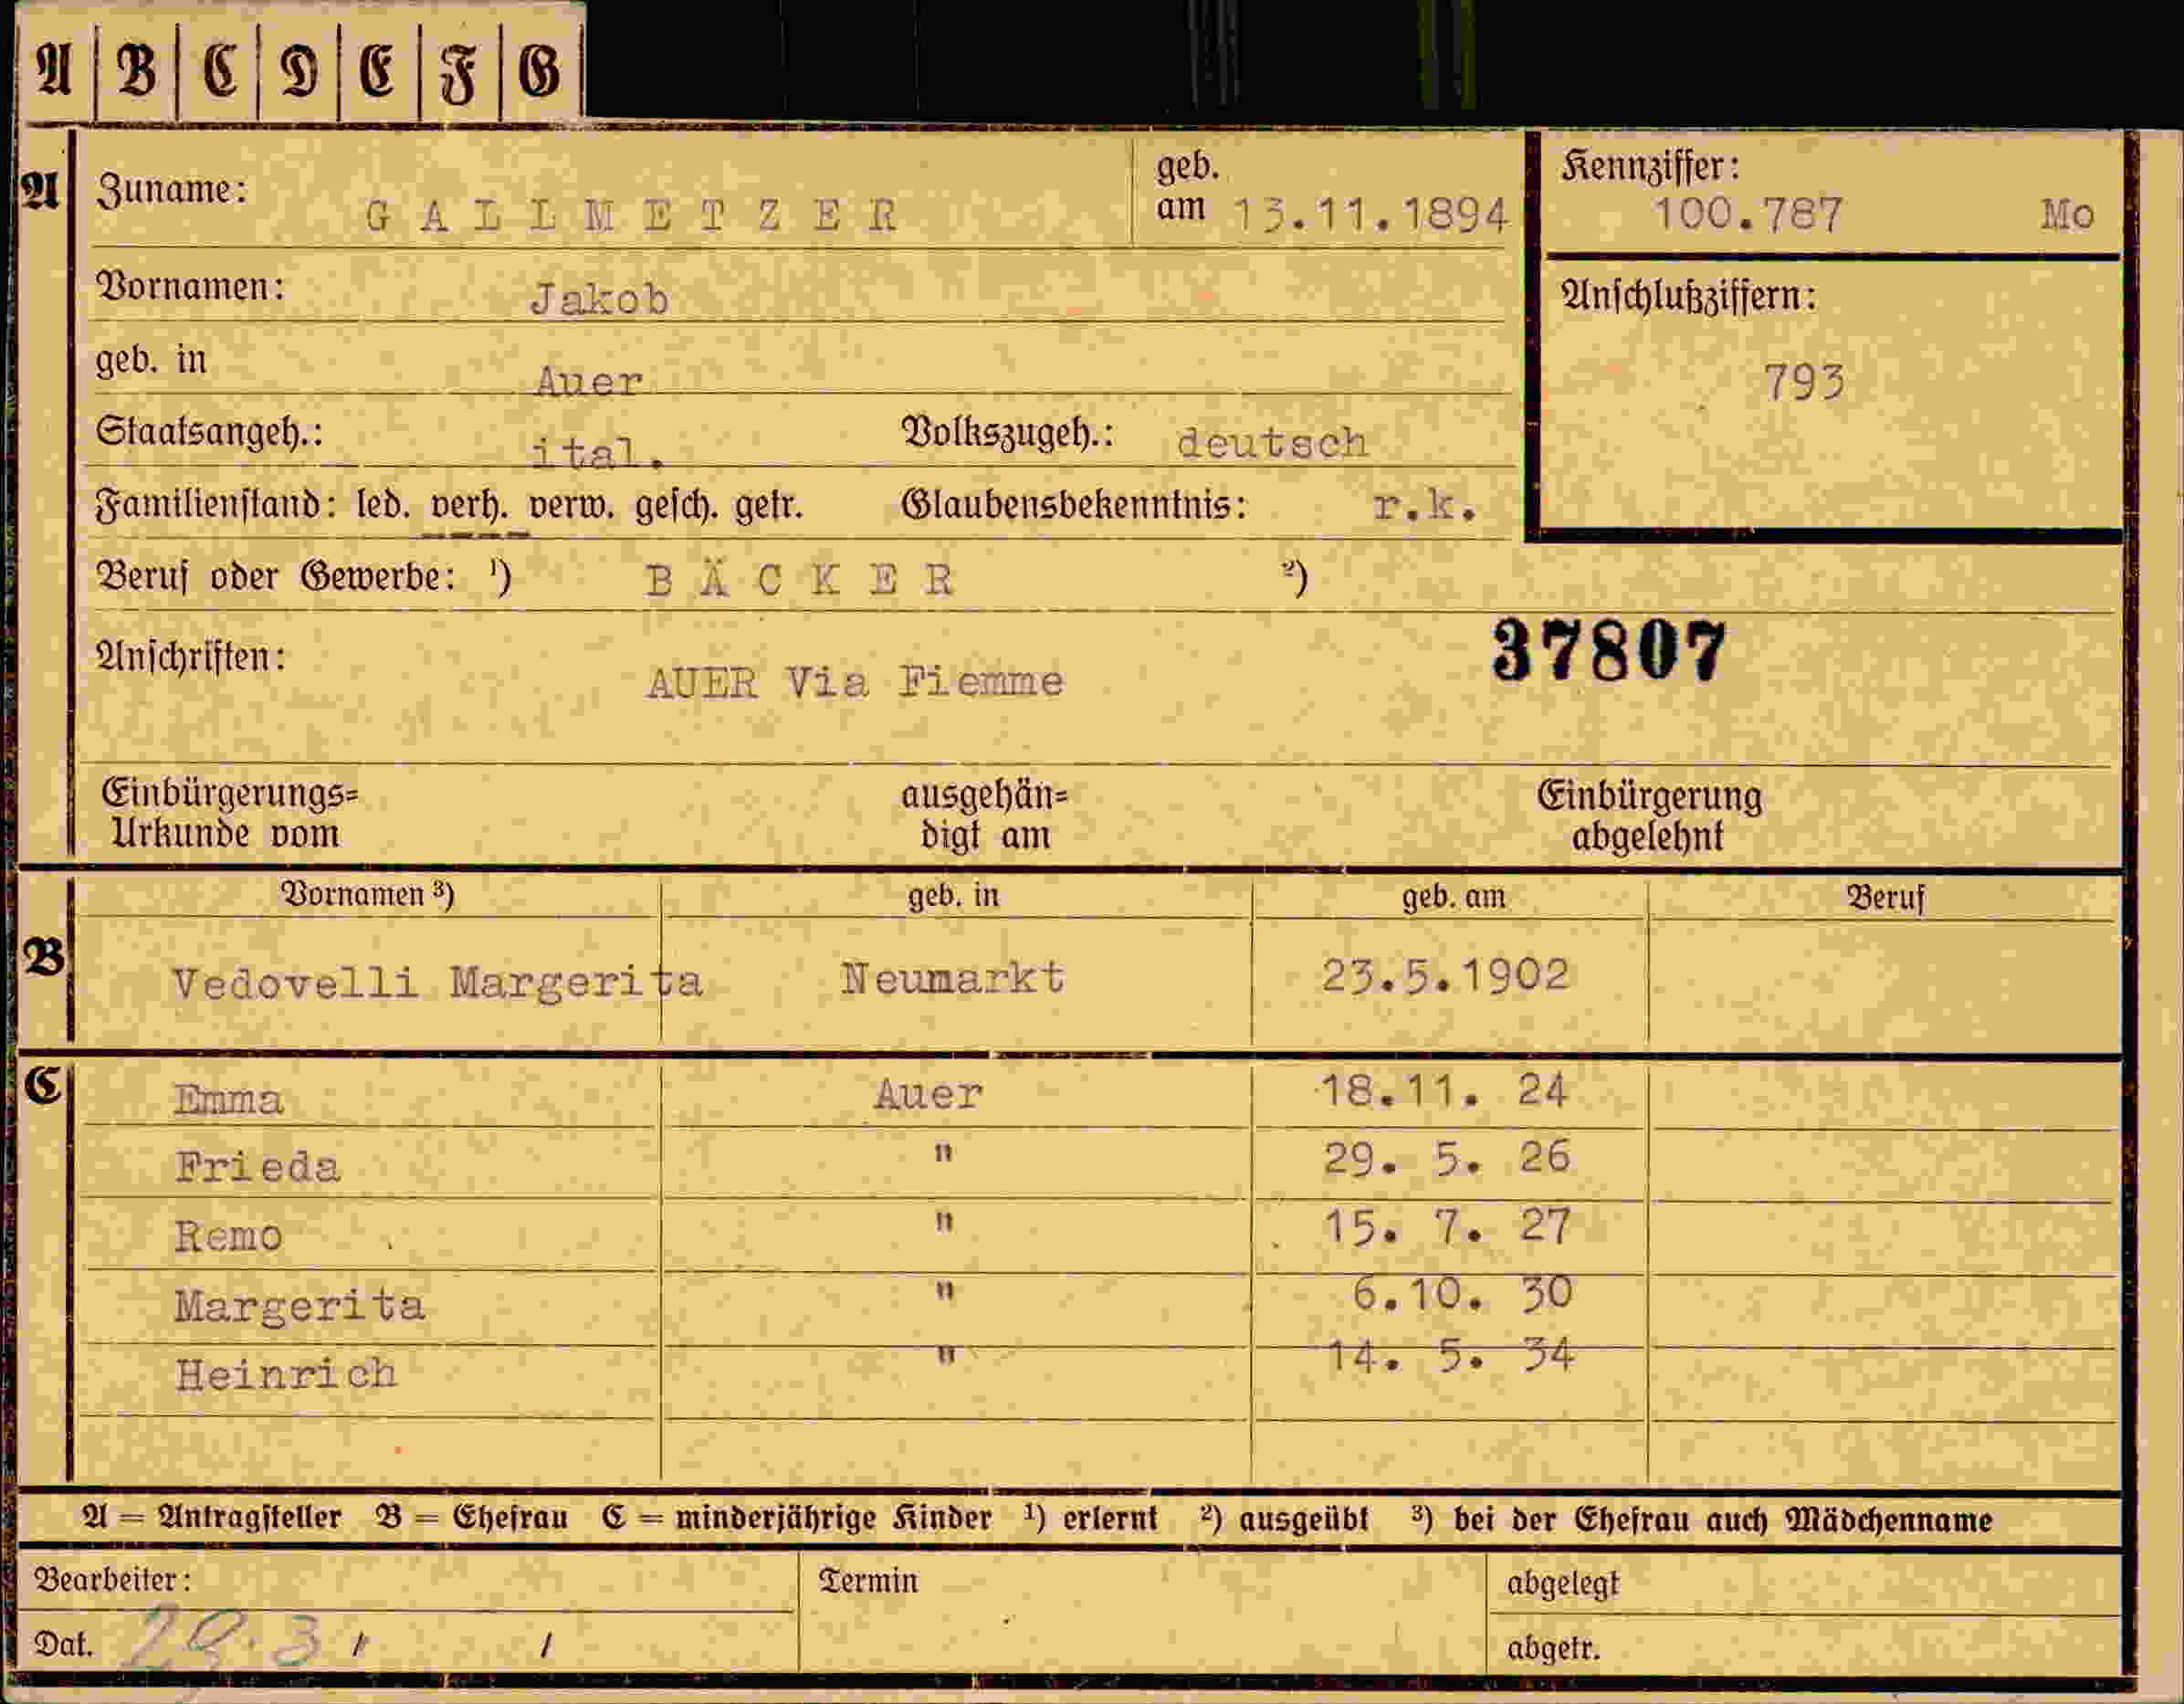 A B C D E F G
A Zuname: GALLMETZER geb. am 13.11.1894 Kennziffer: 100.787 Mo
Vornamen: Jakob Anschlußziffern:
geb. in Auer 793
Staatsangeh.: ital. Volkszugeh.: deutsch
Familienstand: led. verh. verw. gesch. getr. Glaubensbekenntnis: r.k.
Beruf oder Gewerbe: ¹) BÄCKER ²)
37807
Anschriften: AUER Via Fiemme
Einbürgerungs= ausgehän= Einbürgerung
Urkunde vom digt am abgelehnt
Vornamen ³) geb. in geb. am Beruf
B Vedovelli Margerita Neumarkt 23.5.1902
C Emma Auer 18.11. 24
Frieda " 29. 5. 26
Remo " 15. 7. 27
Margerita " 6.10. 30
Heinrich " 14. 5. 34
A = Antragsteller B = Ehefrau C = minderjährige Kinder ¹) erlernt ²) ausgeübt ³) bei der Ehefrau auch Mädchenname
Bearbeiter: Termin abgelegt
Dat. 29.3 / / abgetr.